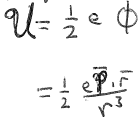 𝒰 = 1/2 e ϕ
= 1/2 e p̄·r̄ / r³